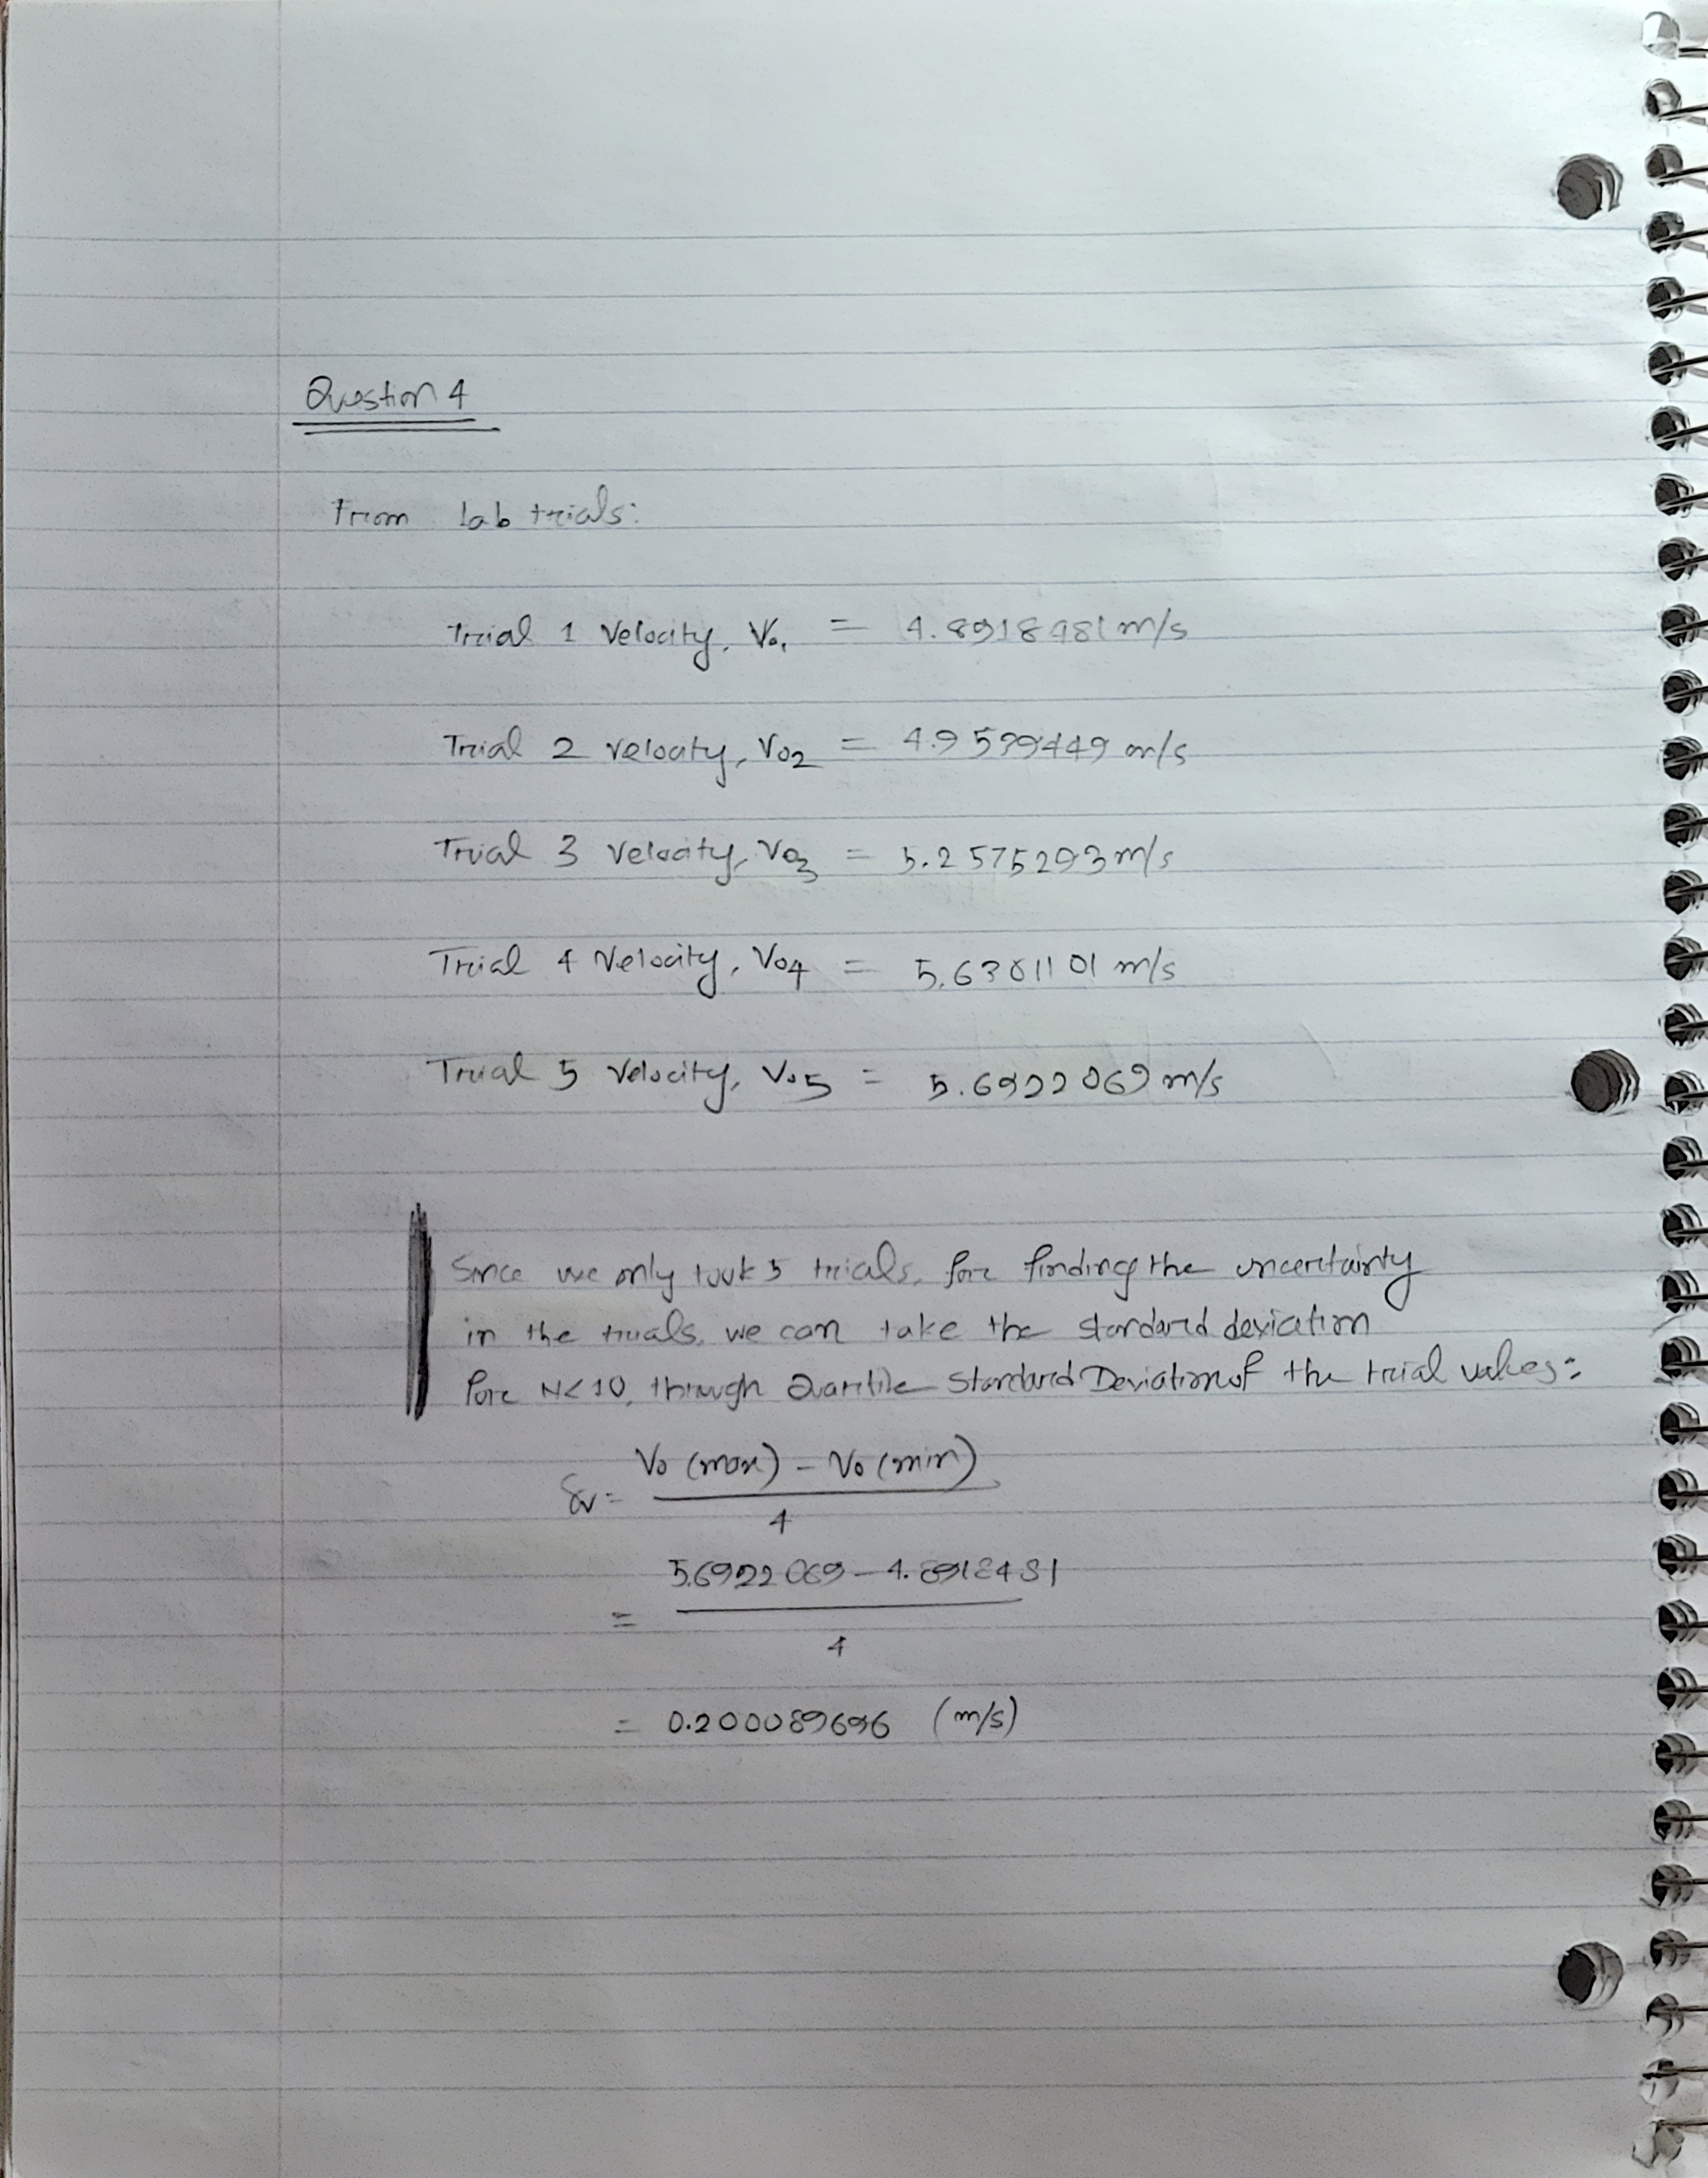 Question 4
From lab trials:
Trial 1 Velocity, V₀₁ = 4.8918481 m/s
Trial 2 velocity, V₀₂ = 4.9599449 m/s
Trial 3 velocity, V₀₃ = 5.2575293 m/s
Trial 4 Velocity, V₀₄ = 5.6381101 m/s
Trial 5 Velocity, V₀₅ = 5.6922069 m/s
Since we only took 5 trials, for finding the uncertainty
in the trials, we can take the standard deviation
for N<10, through Quartile Standard Deviation of the trial values:
δv = V₀ (max) - V₀ (min)
4
= 5.6922069 - 4.8918481
4
= 0.200089696 (m/s)